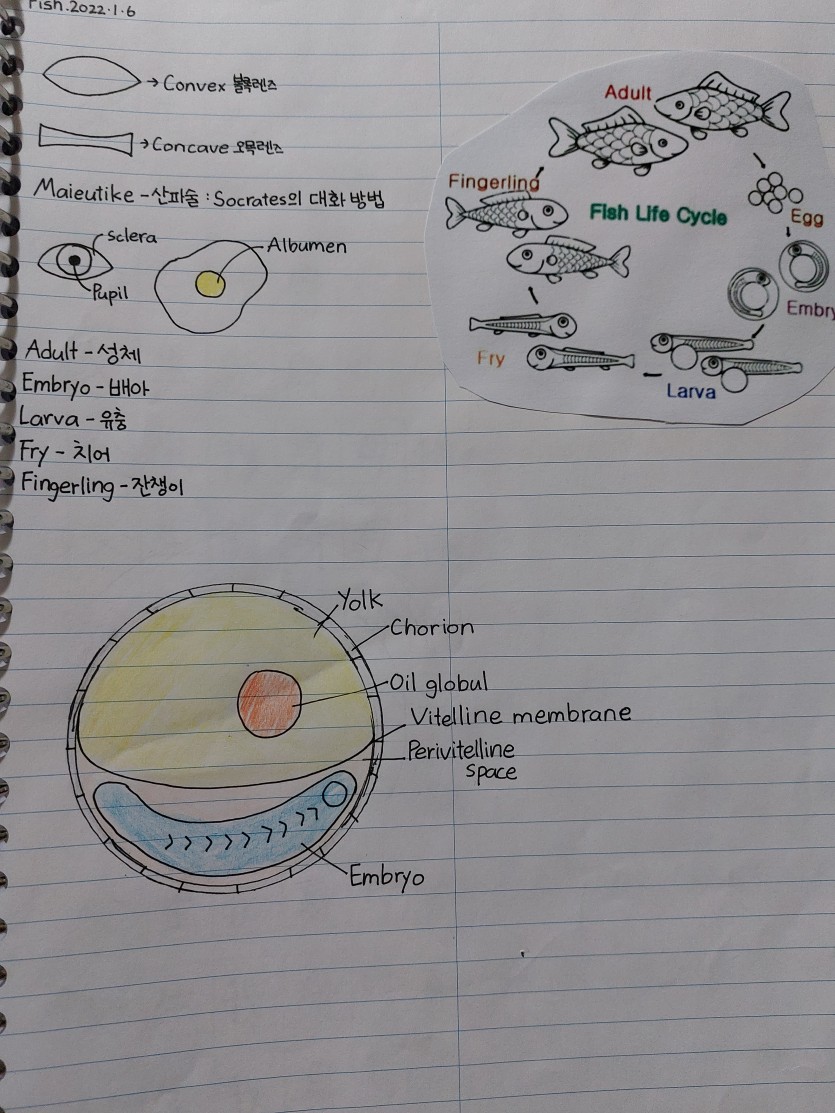 Fish.2022.1.6
→ Convex 볼록렌즈
→ Concave 오목렌즈
Maieutike - 산파술 : Socrates의 대화 방법
sclera
Pupil
Albumen
Adult - 성체
Embryo - 배아
Larva - 유충
Fry - 치어
Fingerling - 잔챙이
Adult
Fingerling
Fish Life Cycle
Egg
Embry
Fry
Larva
Yolk
Chorion
Oil globul
Vitelline membrane
Perivitelline
space
Embryo